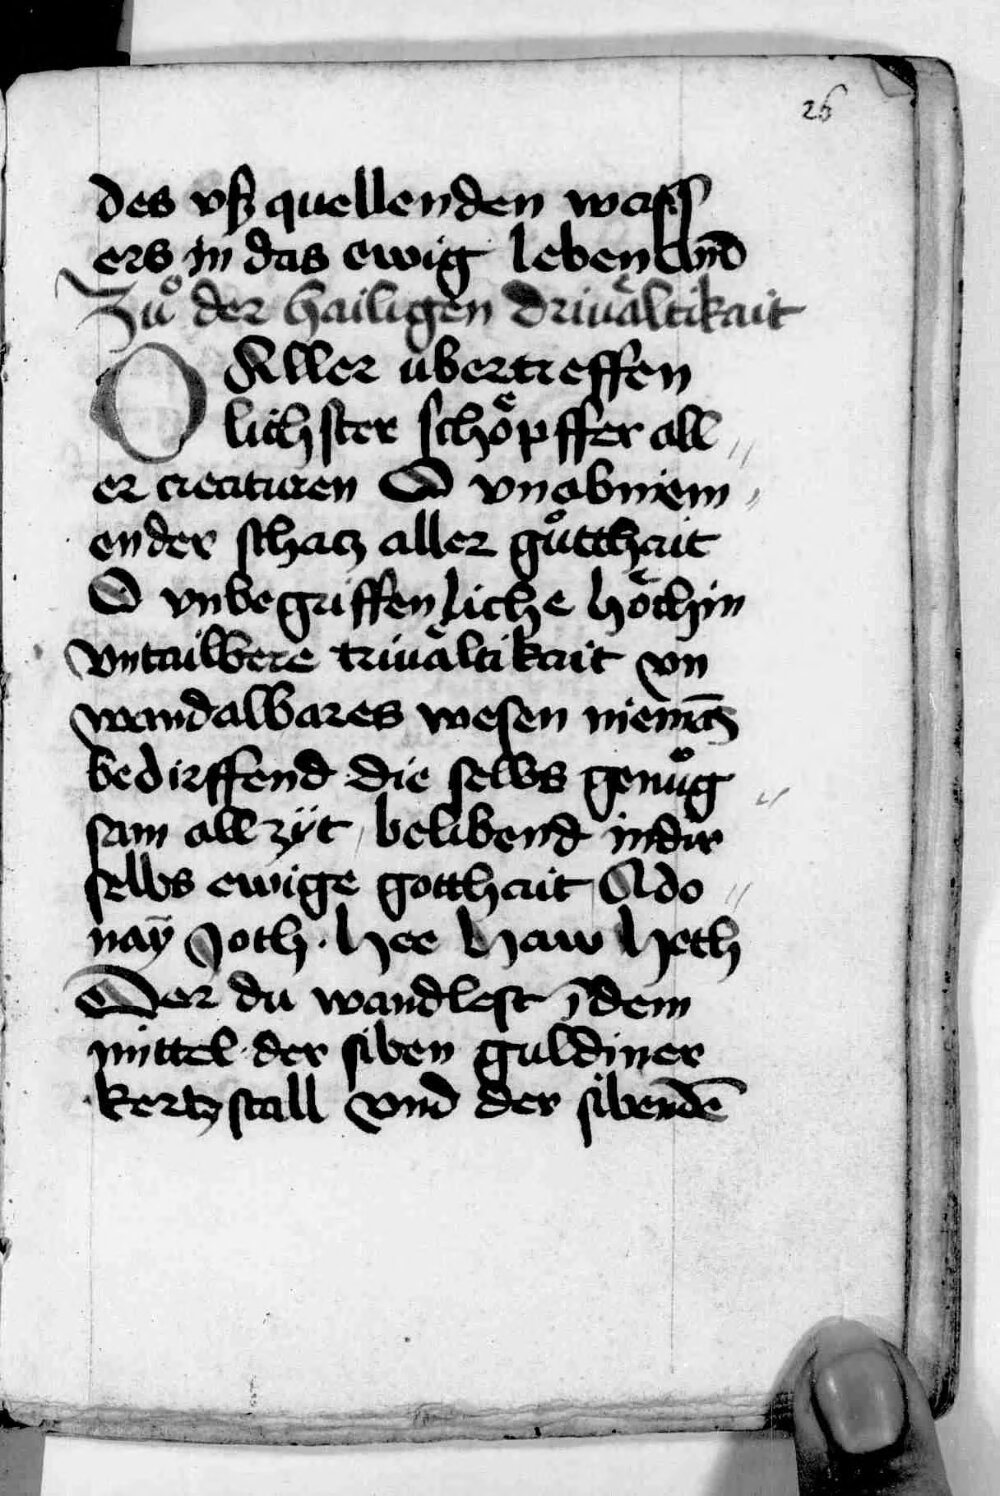 26
des vß quellenden wass
ers in das ewig leben vnd
Zuͦ der hailigen driuaͤltikait
O Aller úbertreffen
lichster schoͤpffer all〃
er creaturen O vnabniem〃
ender schatz aller guͦtthait
O vnbegriffenliche hoͤchin
vntailbere triuaͤltikait vn
wandalbares wesen niema͞tz
bedirffend die selbs genuͦg〃
sam all zÿt belibend in dir
selbs ewige gotthait Ado〃
naÿ Joth . hee haw heth
Der du wandlest ī dem
mittel der siben guldiner
kertzstall vnd der sibendē